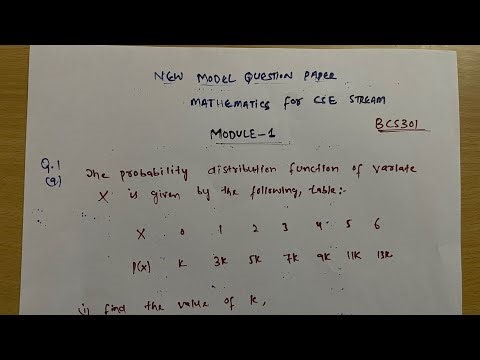 NEW MODEL QUESTION PAPER
MATHEMATICS for CSE STREAM
BCS301
MODULE-1
Q.1 (a) The probability distribution function of variate
X is given by the following, table:-
X 0 1 2 3 4 5 6
P(x) K 3K 5K 7K 9K 11K 13K
(i) find the value of k,